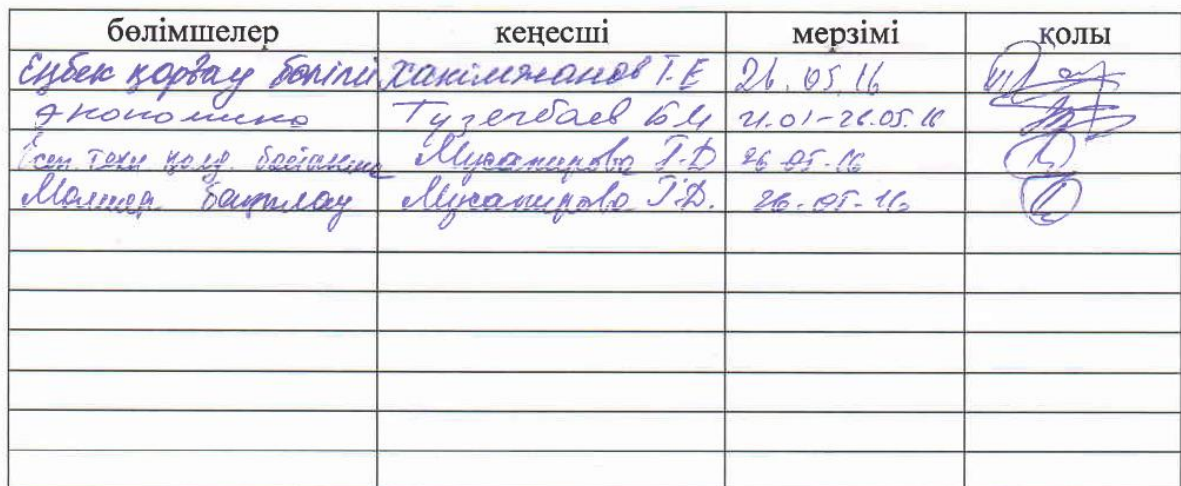 бөлімшелер кеңесші мерзімі қолы
Еңбек қорғау бөлімі Хакімжанов Т.Е 26.05.16
Экономика Тузелбаев Б.И 21.01-26.05.16
Есеп. техн қолд. Мусапирова Г.Д 26.05.16
бақылау Мусапирова Г.Д. 26.05.16